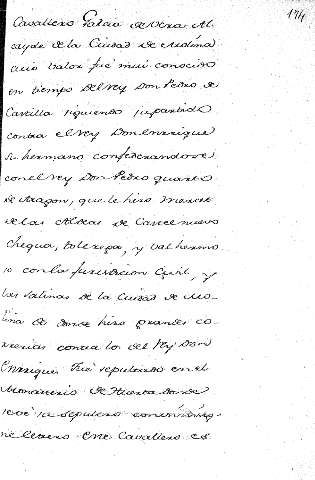 174
Cavallero Garcia de Vera Al
cayde de la Ciudad de Molina
cuio valor fue mui conocido
en tiempo del Rey Don Pedro de
Castilla siguiendo su partido
contra el Rey Don Enrrique
su hermano confederandose
con el Rey Don Pedro quarto
de Aragon, que le hizo merced
de las Aldeas de
chequa, y Valhermo
so con la Jurisdicion Civil, y
las Salinas de la Ciudad de Mo
lina de donde hizo grandes co
rrerias contra los del Rey Don
Enrrique fue sepultado en el
Monasterio de Huerta donde
se ve su sepulcro con
ne letrero este Cavallero es